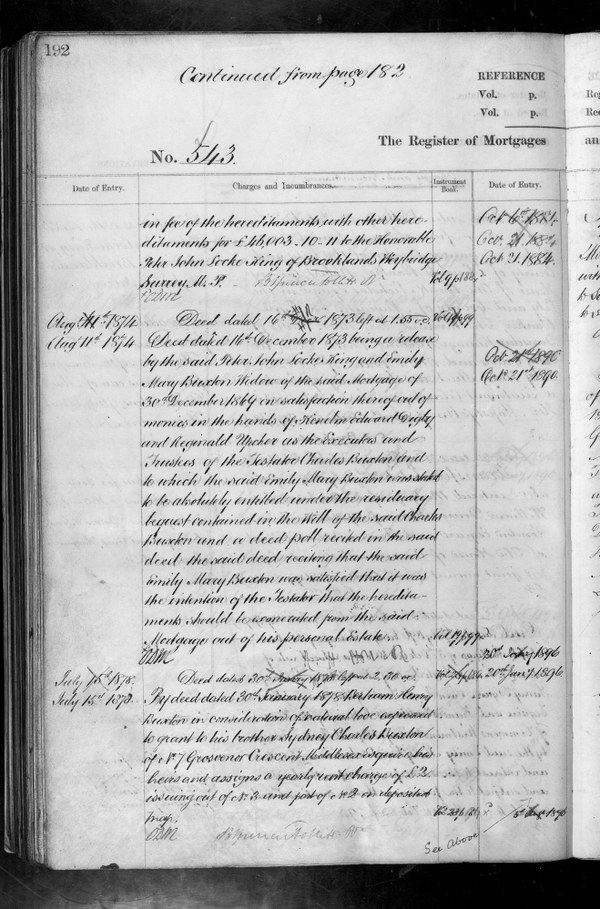 192
Continued from page 182
REFERENCE
Vol. p.
Vol. p.
The Register of Mortgages
an
No. 543.
Date of Entry.
Charges and Incumbrances.
Instrument Book.
Date of Entry.
Reg
Rec
in fee of the hereditaments with other here-
ditaments for £ 16,003-10-11 to the Honorable
Peter John Locke King of Brooklands Weybridge
Surrey M. P.
Oct 6th 1884.
Oct. 21. 1884
Oct 21. 1884.
Augt 11th 1874
Deed dated 16th 1873 left at 1.55
Augt 11th 1874
Deed dated 16th December 1873 being a release
by the said Peter John Locke King and Emily
Mary Buxton Widow of the said Mortgage of
30th December 1869 on satisfaction thereof out of
monies in the hands of Kenelm Edward Digby
and Reginald Upcher as the Executors and
Trustees of the Testator Charles Buxton and
to which the said Emily Mary Buxton was stated
to be absolutely entitled under the residuary
bequest contained in the Will of the said Charles
Buxton and a deed poll recited in the said
deed the said deed reciting that the said
Emily Mary Buxton was satisfied that it was
the intention of the Testator that the heredita-
ments should be exonerated from the said
Mortgage out of his personal Estate.
Oct 21st 1896
July 15th 1878.
Deed dated 30th January 1878 left at 2.30
July 15th 1878.
By deed dated 30th January 1878 Henry
Buxton in consideration of natural love expressed
to grant to his brother Sydney Charles Buxton
of No 7 Grosvenor Crescent Middlesex esquire his
heirs and assigns a yearly rent charge of
issuing out of No 3 and part of No 2 on deposited
map.
20th Jany 1896
See Above